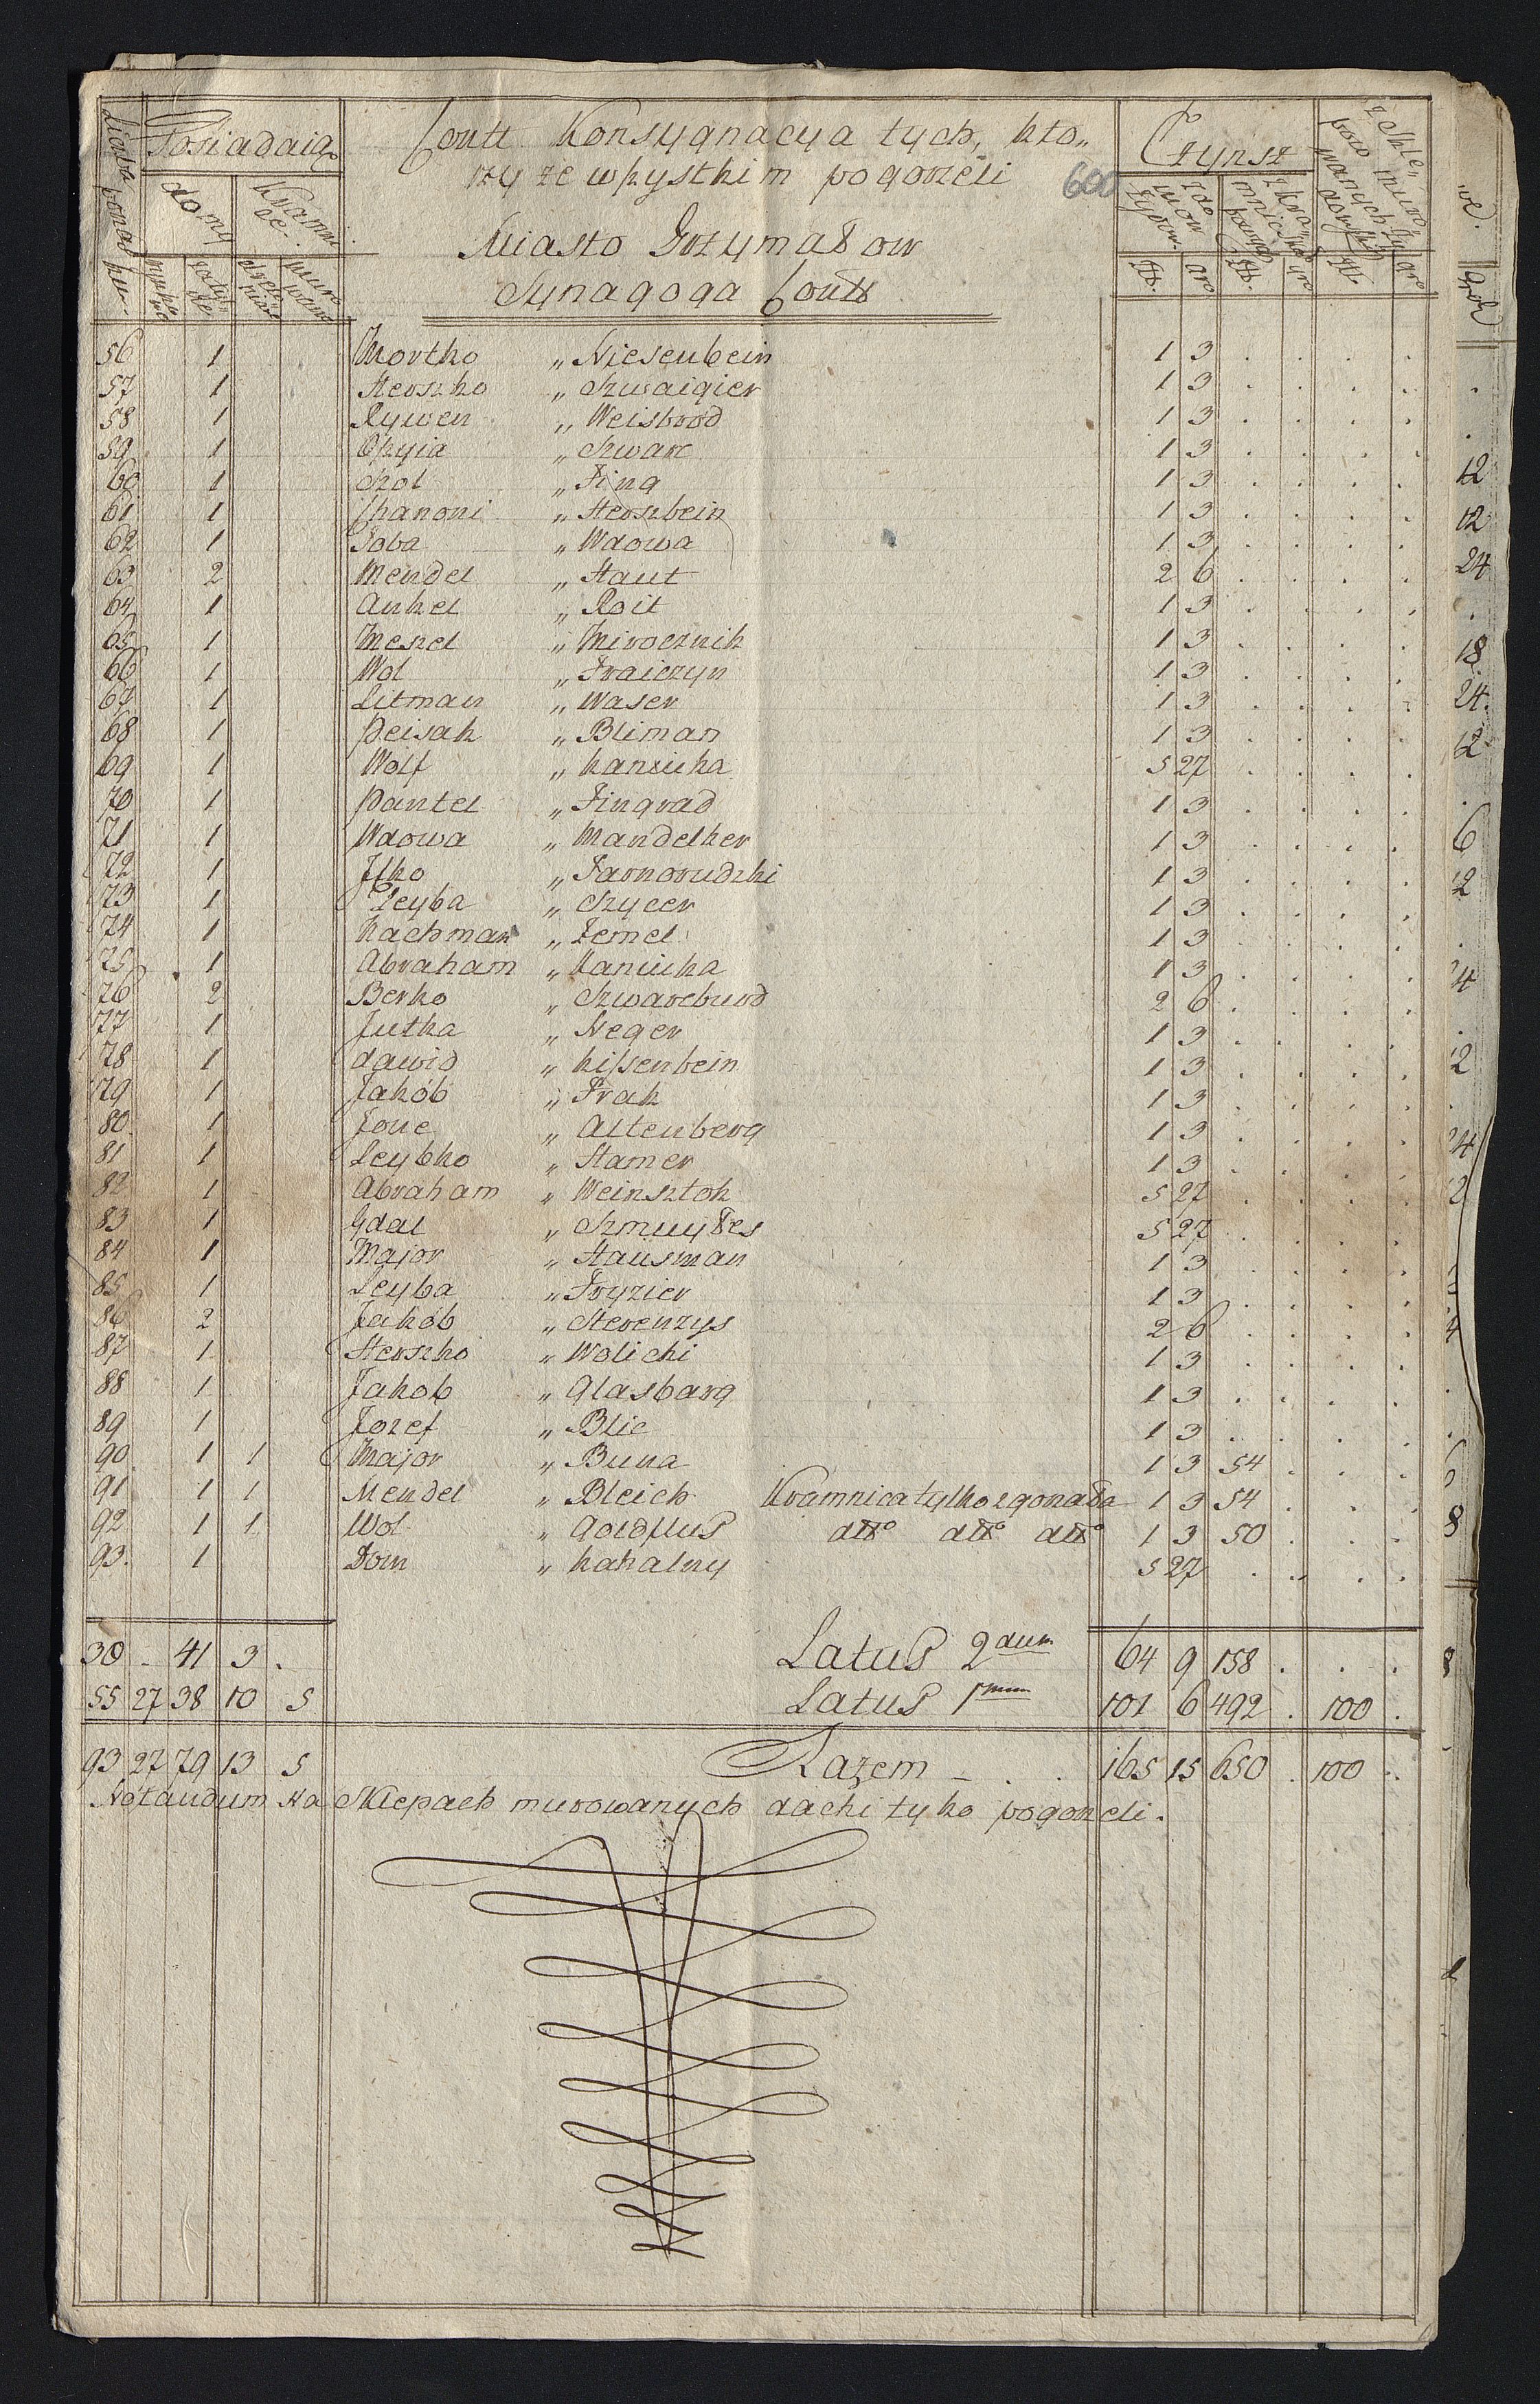 Posiadaią
Contt Konsygnacya tych, kto„
rzy ze wszystkim pogorzeli
600
Czynsz
Liczba pogorzel
domy
Kramni
ce
Miasto Grzymałow
Synagoga Contt
murowa
zł. gr. zł. gr. zł. gr.
56 1 Mortko „ Niesenbein 1 3 . . . .
57 1 Herszko „ Szwaigier 1 3 . . . .
58 1 Rywen „ Weisbrod 1 3 . . . .
59 1 Oszyia „ Szwarc 1 3 . . . .
60 1 Szol „ Fing 1 3 . . . .
61 1 Chanoni „ Herszbein 1 3 . . . .
62 1 Toba „ Wdowa 1 3 . . . .
63 2 Mendel „ Haut 2 6 . . . .
64 1 Ankel „ Roit 1 3 . . . .
65 1 Meszel „ Mirocznik 1 3 . . . .
66 1 Wol „ Fraiczyn 1 3 . . . .
67 1 Litman „ Waser 1 3 . . . .
68 1 Peisak „ Bliman 1 3 . . . .
69 1 Wolf „ Kanciuka 5 27 . . . .
70 1 Pantel „ Fingrad 1 3 . . . .
71 1 Wdowa „ Mandelker 1 3 . . . .
72 1 Jtko „ Tarnorudzki 1 3 . . . .
73 1 Leyba „ Szycer 1 3 . . . .
74 1 Nachman „ Zemel 1 3 . . . .
75 1 Abraham „ Kaniuka 1 3 . . . .
76 2 Berko „ Szwarcburd 2 6 . . . .
77 1 Jutka „ Neger 1 3 . . . .
78 1 dawid „ Kissenbein 1 3 . . . .
79 1 Jakób „ Frak 1 3 . . . .
80 1 Jone „ Altenberg 1 3 . . . .
81 1 Leybko „ Hamer 1 3 . . . .
82 1 Abraham „ Weinsztok 5 27 . . . .
83 1 Gdal „ Szmuyłes 5 27 . . . .
84 1 Major „ Hausman 1 3 . . . .
85 1 Leyba „ Fryzier 1 3 . . . .
86 2 Jakób „ Sterenzys 2 6 . . . .
87 1 Herszko „ Wolicki 1 3 . . . .
88 1 Jakob „ Glasbarg 1 3 . . . .
89 1 Jozef „ Blic 1 3 . . . .
90 1 1 Major „ Buna 1 3 54 . . .
91 1 1 Mendel „ Bleich Kramnica tylko zgorzała 1 3 54 . . .
92 1 1 Wol „ Goldflus dtto dtto dtto 1 3 50 . . .
93. 1 Dom „ Kahalny 5 27 . . . .
38 . 41 3 . Latus 2dum 64 9 158 . . .
55 27 38 10 5 Latus 1mum 101 6 492 . 100 .
93 27 79 13 5 Razem — . . 165 15 650 . 100 .
Notandum Na Sklepach murowanych dachi tyko pogorzeli.